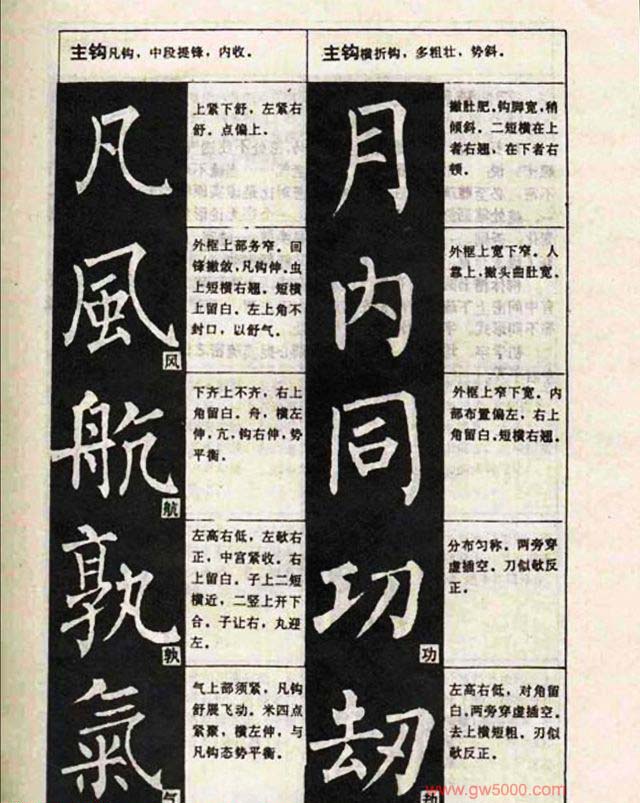 主钩凡钩，中段提锋，内收。
凡
上紧下舒，左紧右
舒。点偏上。
風
风
外框上部务窄。回
锋撇敛，凡钩伸。虫
上短横右翘。短横
上留白。左上角不
封口，以舒气。
航
航
下齐上不齐，右上
角留白。舟，横左
伸，亢，钩右伸，势
平衡。
孰
孰
左高右低，左欹右
正，中宫紧收。右
上留白。子上二短
横近，二竖上开下
合。子让右，丸迎
左。
氣
气
气上部须紧，凡钩
舒展飞动。米四点
紧聚，横左伸，与
凡钩态势平衡。
主钩横折钩，多粗壮，势斜。
月
撇肚肥，钩脚宽，稍
倾斜。二短横在上
者右翘，在下者右
顿。
内
外框上宽下窄。人
靠上，撇头曲肚宽。
同
外框上窄下宽。内
部布置偏左，右上
角留白。短横右翘。
功
功
分布匀称。两旁穿
虚插空。刀似欹反
正。
劫
劫
左高右低，对角留
白，两旁穿虚插空。
去上横短粗，刃似
欹反正。
www.gw5000.com